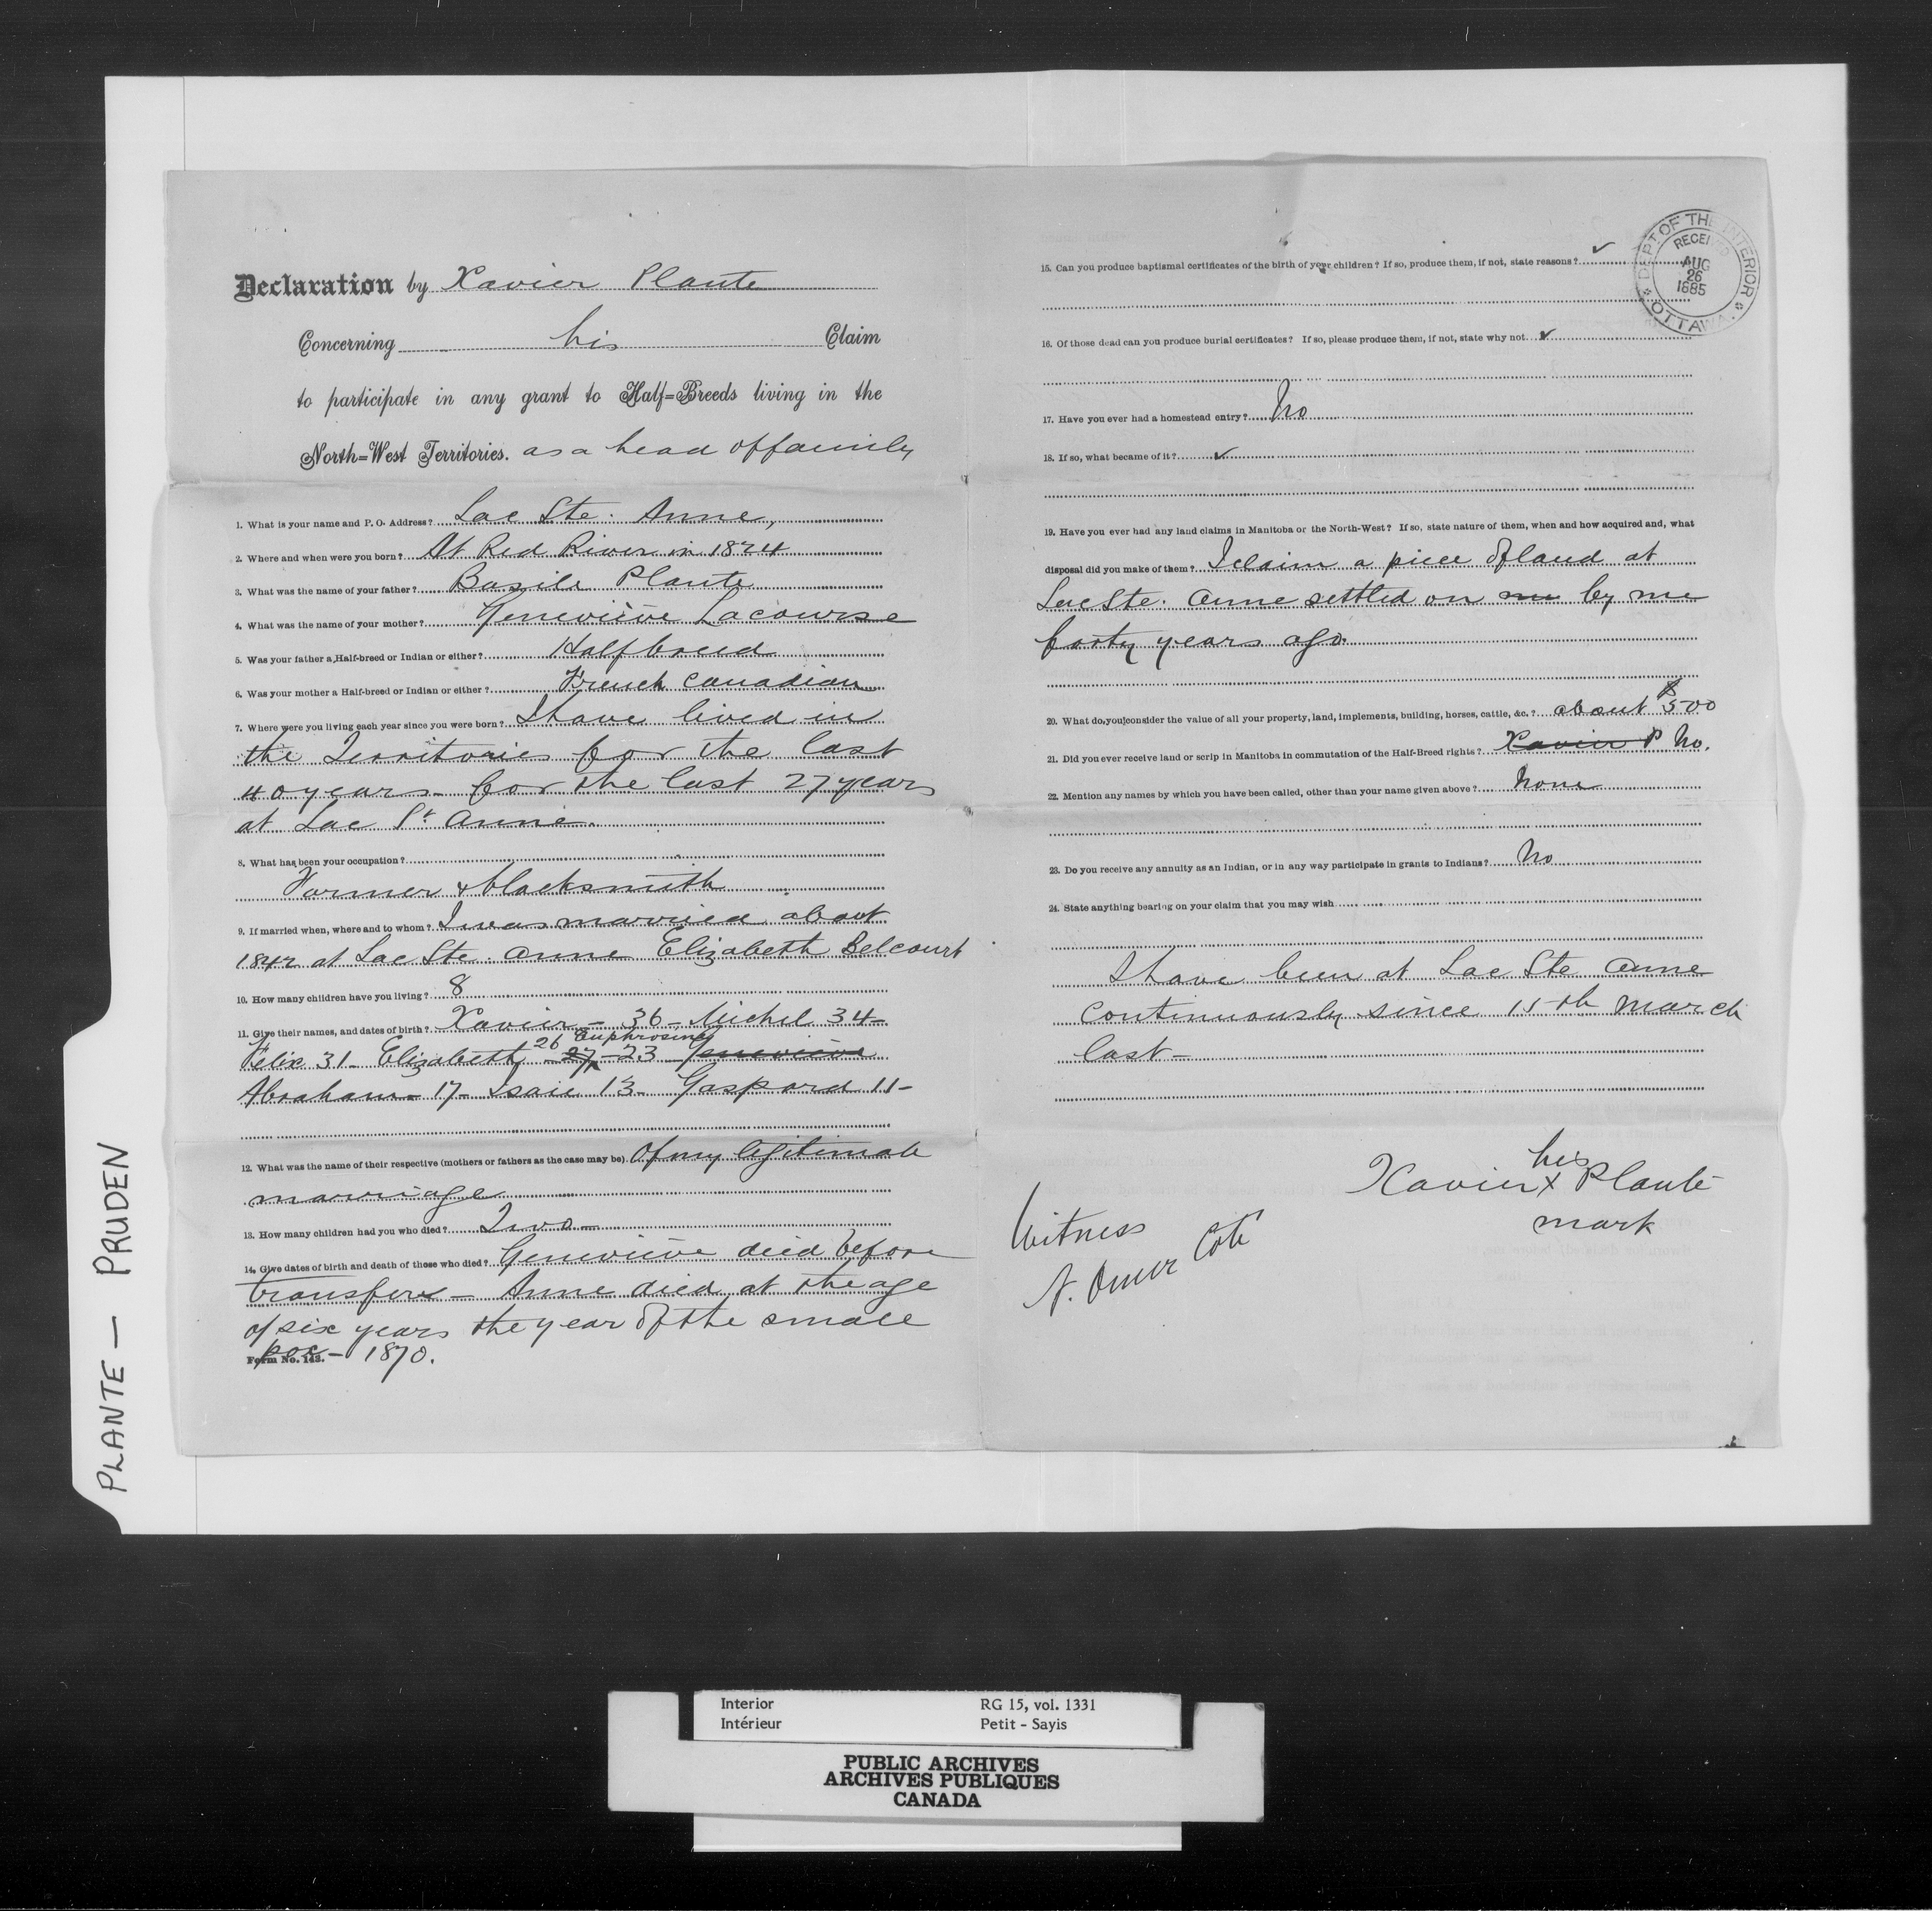 Declaration by Xavier Plante
Concerning his Claim
to participate in any grant to Half=Breeds living in the
North=West Territories. as a head of family
1. What is your name and P. O. Address? Lac Ste. Anne,
2. Where and when were you born? At Red River in 1824
3. What was the name of your father? Basile Plante
4. What was the name of your mother? Geneviève Lacourse
5. Was your father a Half-breed or Indian or either? Halfbreed
6. Was your mother a Half-breed or Indian or either? French Canadian
7. Where were you living each year since you were born? I have lived in
the Territories for the last
40 years – for the last 27 years
at Lac St Anne.
8. What has been your occupation?
Farmer & blacksmith
9. If married when, where and to whom? I was married about
1842 at Lac Ste. Anne Elizabeth Belcourt
10. How many children have you living? 8
11. Give their names, and dates of birth? Xavier – 36 – Michel 34 –
26 Euphrosine
Felix 31 – Elizabeth 27 – 23 – Geneviève
Abraham – 17 – Isaie 13 – Gaspard 11 –
12. What was the name of their respective (mothers or fathers as the case may be). Of my legitimate
marriage
13. How many children had you who died? Two –
14. Give dates of birth and death of those who died? Geneviève died before
transfer – Anne died at the age
of six years the year of the small
pox – 1870.
Form No. 143.
15. Can you produce baptismal certificates of the birth of your children? If so, produce them, if not, state reasons? ✓
16. Of those dead can you produce burial certificates? If so, please produce them, if not, state why not. ✓
17. Have you ever had a homestead entry? No
18. If so, what became of it? ✓
19. Have you ever had any land claims in Manitoba or the North-West? If so, state nature of them, when and how acquired and, what
disposal did you make of them? I claim a piece of land at
Lac Ste. Anne settled on me by me
forty years ago.
20. What do you consider the value of all your property, land, implements, building, horses, cattle, &c.? about $500
21. Did you ever receive land or scrip in Manitoba in commutation of the Half-Breed rights? Xavier P No.
22. Mention any names by which you have been called, other than your name given above? None
23. Do you receive any annuity as an Indian, or in any way participate in grants to Indians? No
24. State anything bearing on your claim that you may wish
I have been at Lac Ste Anne
continuously since 15th March
last –
his
Xavier x Plante
mark
Witness
N. Omer Coté
DEPT OF THE INTERIOR
RECEIVED
AUG
26
1885
OTTAWA.
PLANTE — PRUDEN
Interior RG 15, vol. 1331
Intérieur Petit - Sayis
PUBLIC ARCHIVES
ARCHIVES PUBLIQUES
CANADA